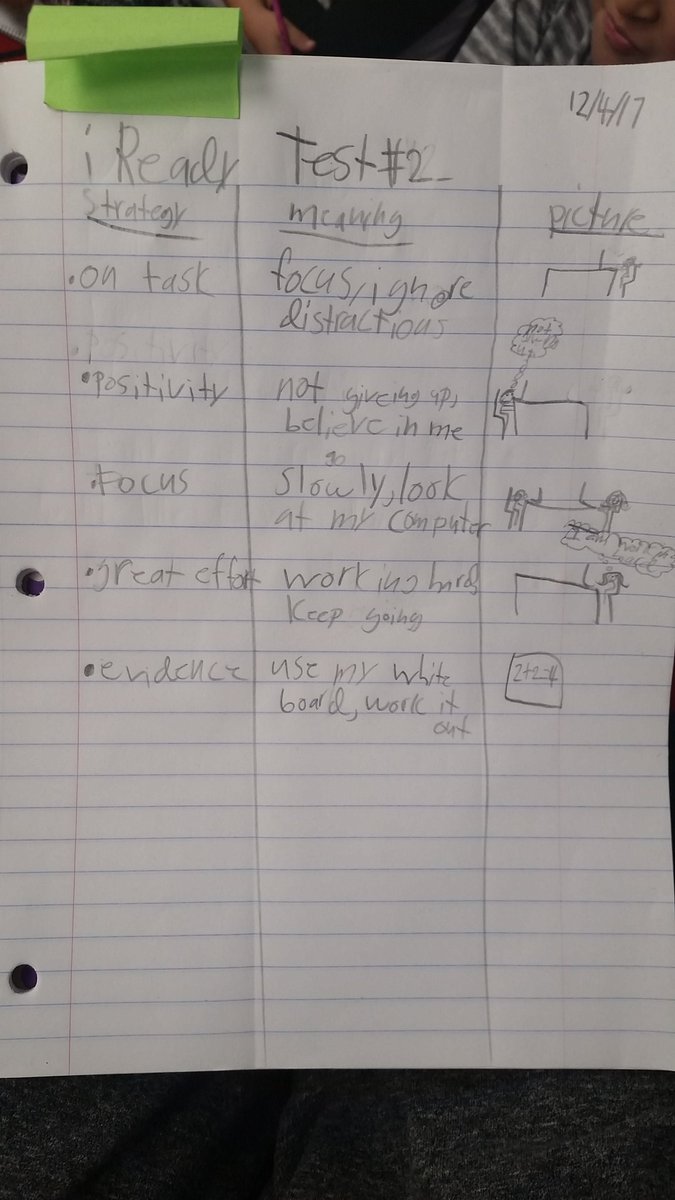 12/4/17
i Ready Test #2
Strategy meaning picture
• on task focus, ignore
distractions
positivity
• positivity not giveing up,
believe in me
• Focus go
slowly, look
at my computer
• great effort working hard,
keep going
• evidence use my white 2+2=4
board, work it
out